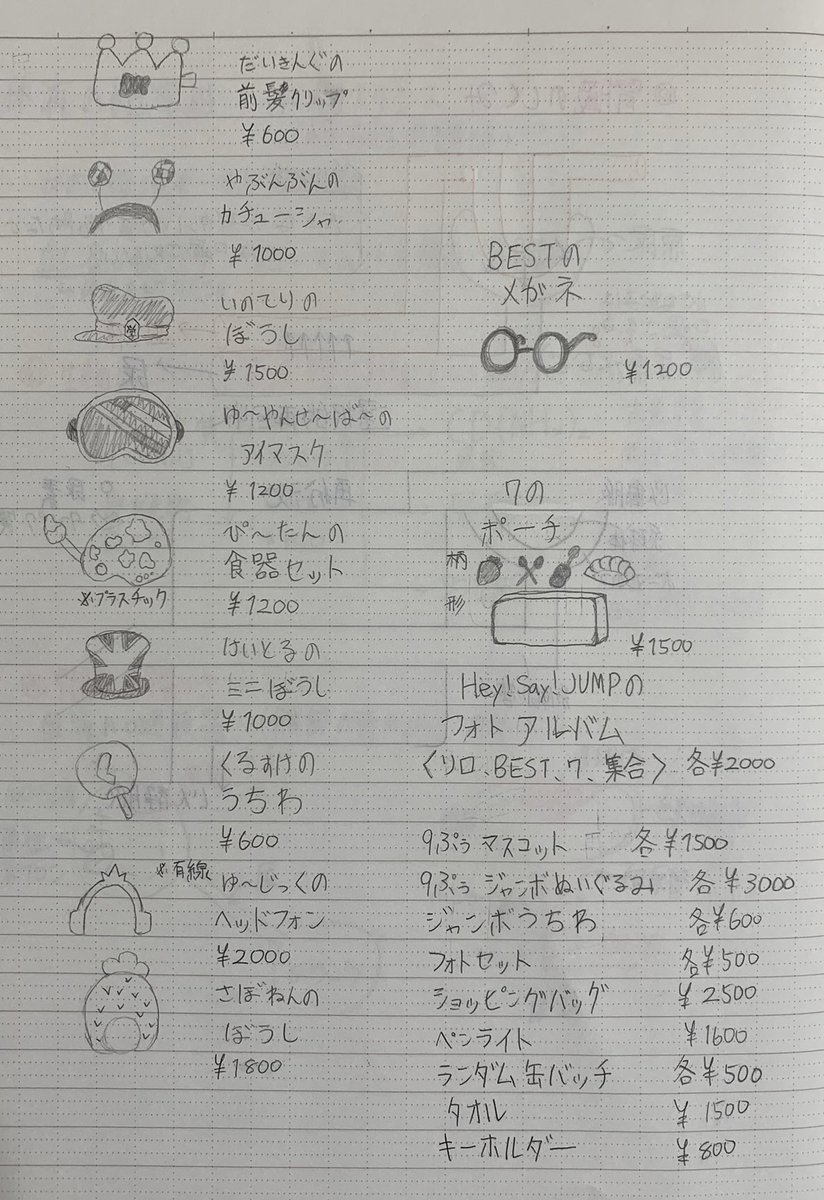 だいきんぐの
前髪クリップ
¥600
やぶんぶんの
カチューシャ
¥1000
いのてりの
ぼうし
¥1500
ゆ〜やんせ〜ば〜の
アイマスク
¥1200
ぴ〜たんの
食器セット
※プラスチック
¥1200
けいとるの
ミニぼうし
¥1000
くるすけの
うちわ
¥600
※有線
ゆ〜じっくの
ヘッドフォン
¥2000
さぼねんの
ぼうし
¥1800
BESTの
メガネ
¥1200
7の
ポーチ
柄
形
¥1500
Hey!Say!JUMPの
フォトアルバム
〈ソロ、BEST、7、集合〉 各¥2000
9ぷぅ マスコット 各¥1500
9ぷぅ ジャンボぬいぐるみ 各¥3000
ジャンボうちわ 各¥600
フォトセット 各¥500
ショッピングバッグ ¥2500
ペンライト ¥1600
ランダム缶バッチ 各¥500
タオル ¥1500
キーホルダー ¥800